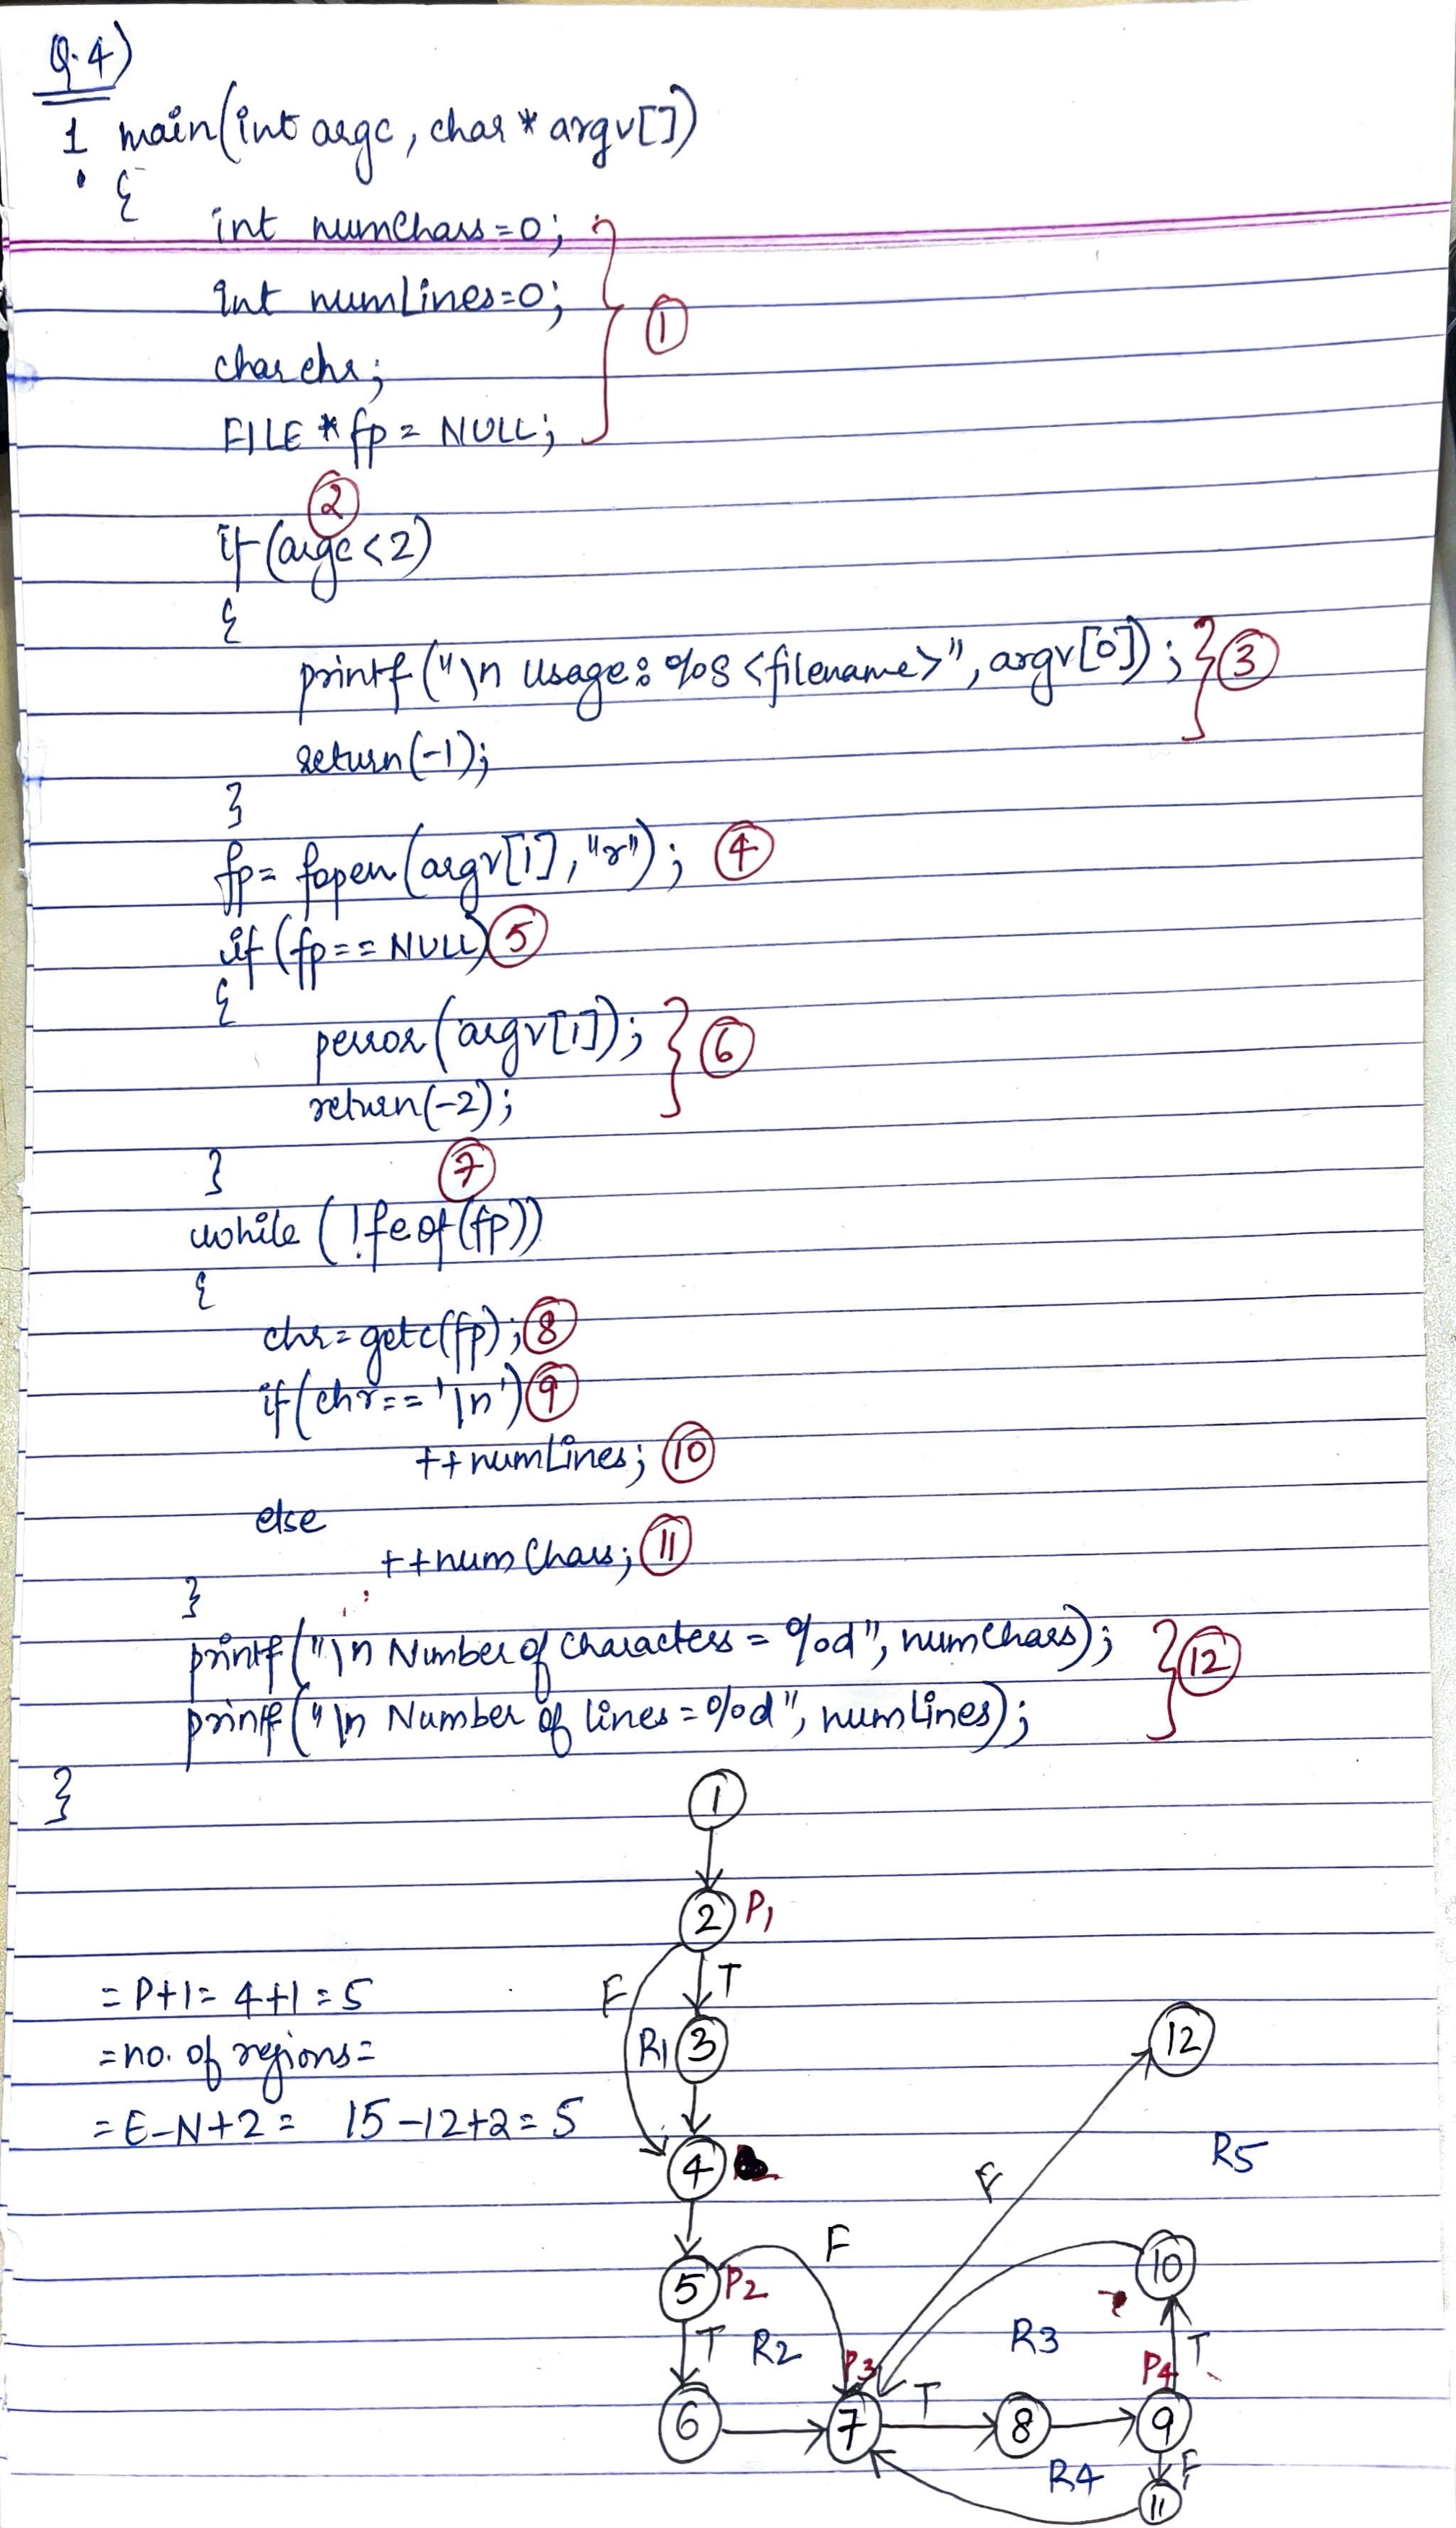 Q.4)
1 main(int argc, char * argv[])
{
int numChars=0;
int numLines=0; ①
char chr;
FILE * fp = NULL;
②
if (argc<2)
{
printf("\n Usage: %s <filename>", argv[0]); ③
return(-1);
}
fp= fopen(argv[1], "r"); ④
if (fp== NULL) ⑤
{
perror(argv[1]); ⑥
return(-2);
} ⑦
while (!feof(fp))
{
chr=getc(fp); ⑧
if(chr=='\n') ⑨
++numLines; ⑩
else
++numChars; ⑪
}
printf("\n Number of characters = %d", numChars); ⑫
printf("\n Number of lines = %d", numLines);
}
1
2 P1
= P+1= 4+1=5
F T
=no. of regions=
R1 3 12
= E-N+2= 15-12+2=5
4
R5
F
F
5 P2 10
T R2 P3 R3 P4 T
6 7 T 8 9
R4 F
11